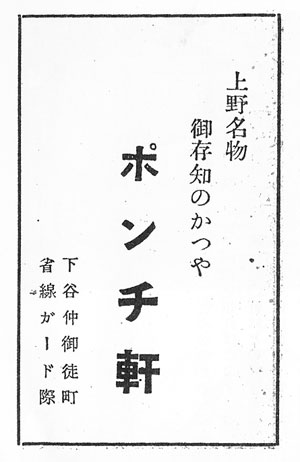 上野名物
御存知のかつや
ポンチ軒
下谷仲御徒町
省線ガード際